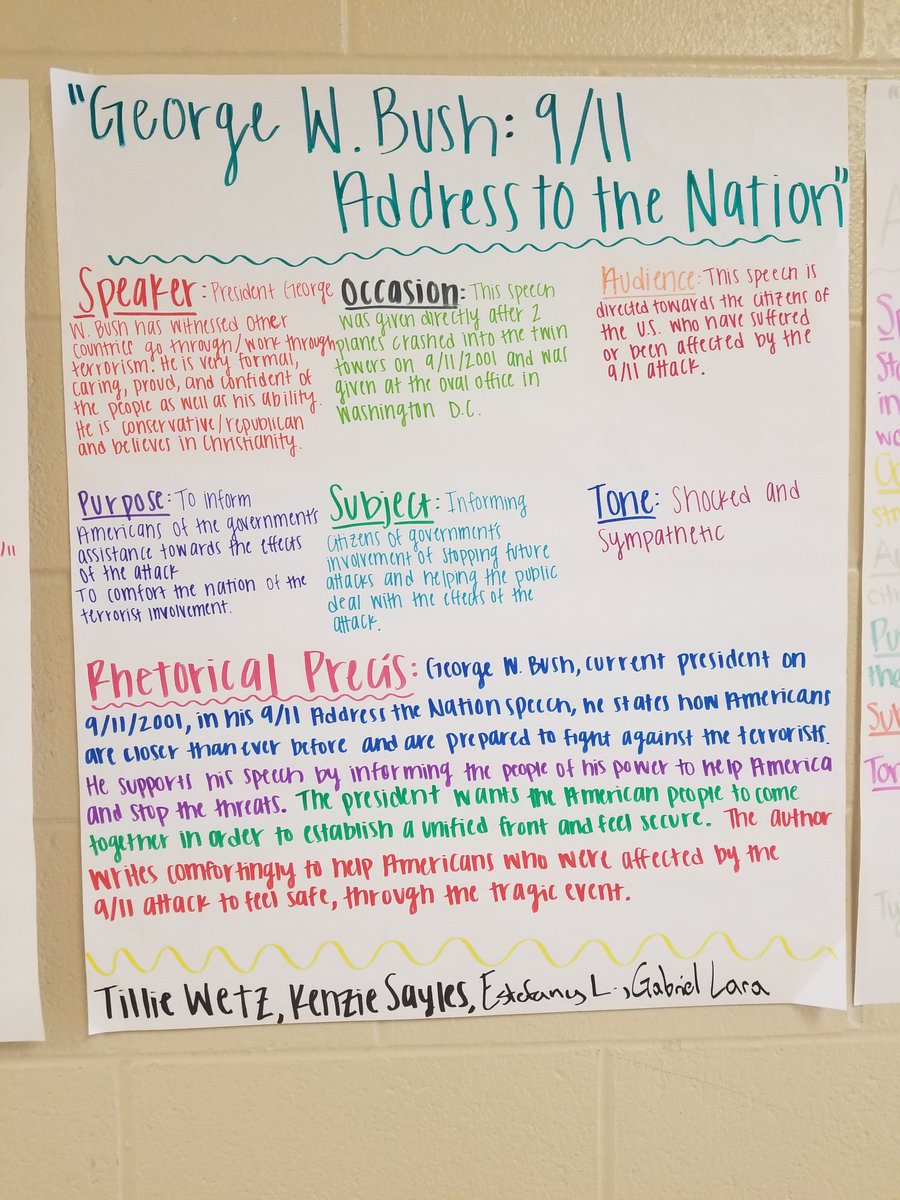 "George W. Bush: 9/11
Address to the Nation"
Speaker: President George
W. Bush has witnessed other
countries go through/work through
terrorism. He is very formal,
caring, proud, and confident of
the people as well as his ability.
He is conservative/republican
and believes in Christianity.
Occasion: This speech
was given directly after 2
planes crashed into the twin
towers on 9/11/2001 and was
given at the oval office in
Washington D.C.
Audience: This speech is
directed towards the citizens of
the U.S. who have suffered
or been affected by the
9/11 attack.
Purpose: To inform
Americans of the government's
assistance towards the effects
of the attack
To comfort the nation of the
terrorist involvement.
Subject: Informing
citizens of governments
involvement of stopping future
attacks and helping the public
deal with the effects of the
attack.
Tone: Shocked and
Sympathetic
Rhetorical Precís: George W. Bush, current president on
9/11/2001, in his 9/11 Address the Nation speech, he states how Americans
are closer than ever before and are prepared to fight against the terrorists.
He supports his speech by informing the people of his power to help America
and stop the threats. The president wants the American people to come
together in order to establish a unified front and feel secure. The author
writes comfortingly to help Americans who were affected by the
9/11 attack to feel safe, through the tragic event.
Tillie Wetz, Kenzie Sayles, Estefany L., Gabriel Lara
/11
Sp
Sta
in
wo
Oc
str
Au
citi
Pu
the
Sub
Ton
Ty